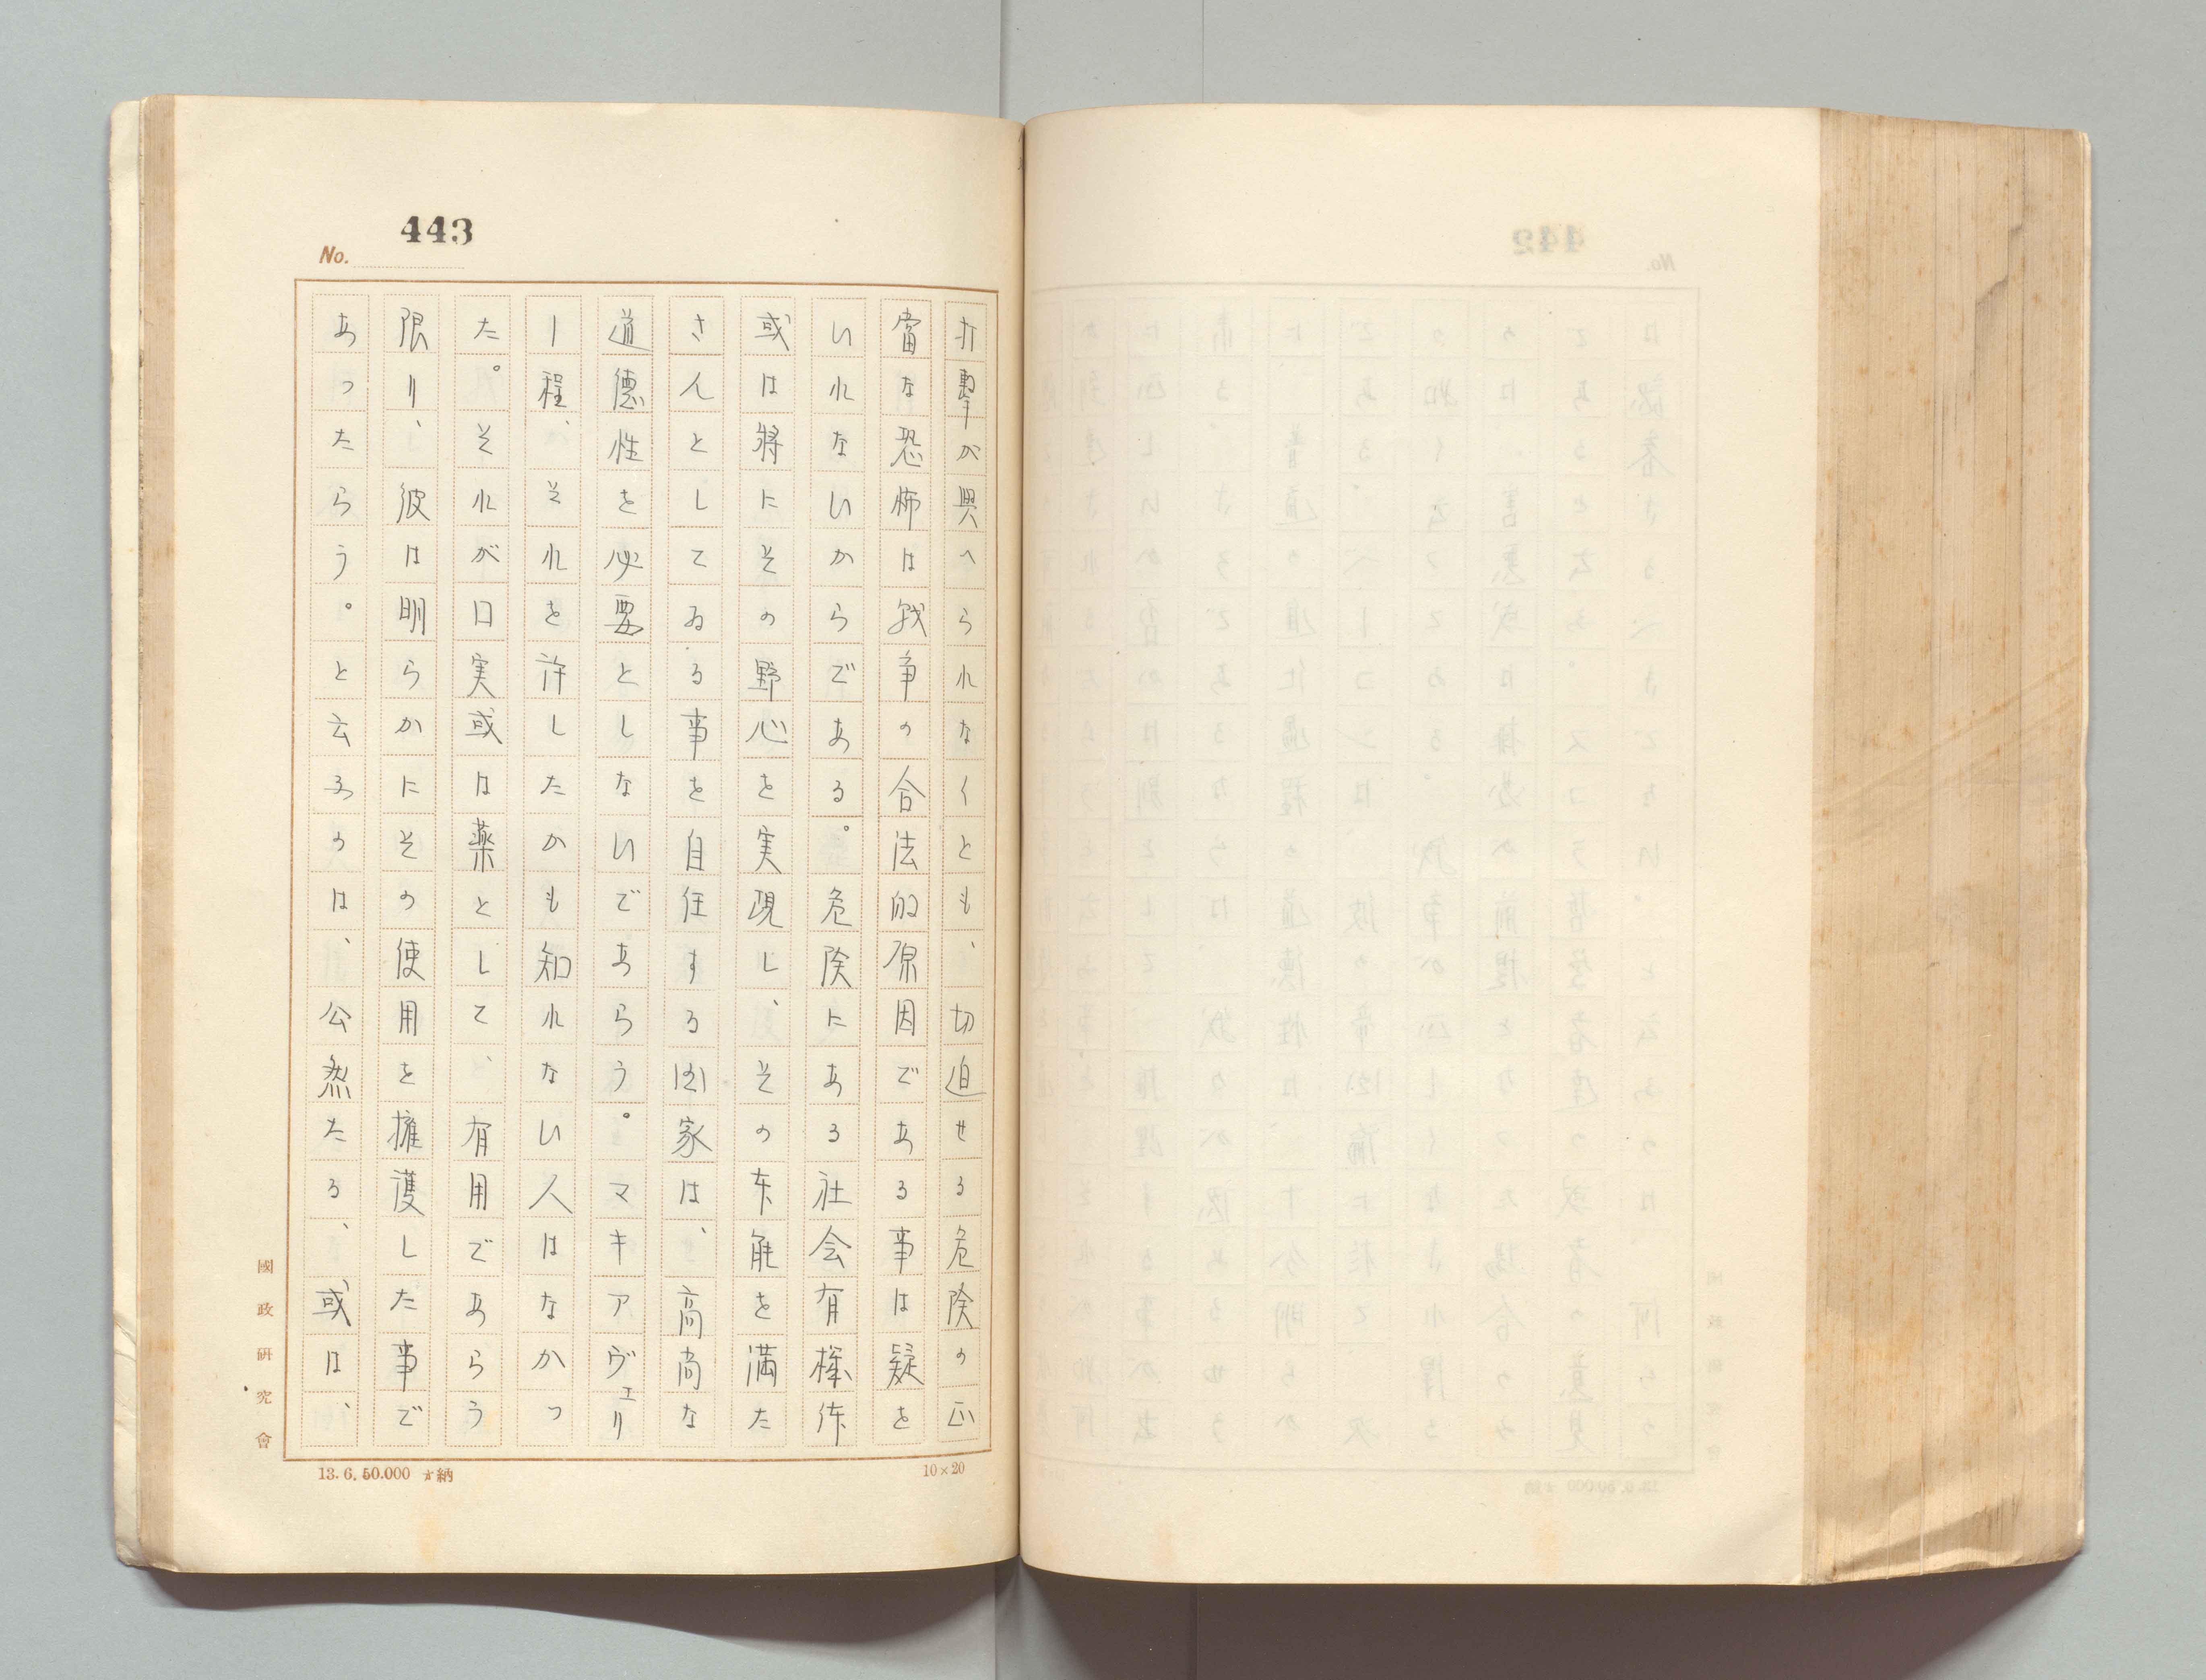 443
No.
打撃が與へられなくとも、切迫せる危険の正
當な恐怖は戦争の合法的原因である事は疑を
いれないからである。危険にある社会有機体
或は将にその野心を実現し、その本能を満た
さんとしてゐる事を自任する国家は、高尚な
道德性を必要としないであらう。マキアヴェリ
ー程、それを許したかも知れない人はなかっ
た。それが口実或は薬として、有用であらう
限り、彼は明らかにその使用を擁護した事で
あったらう。と云ふのは、公然たる、或は、
國政研究會
13.6.50.000 納
10×20